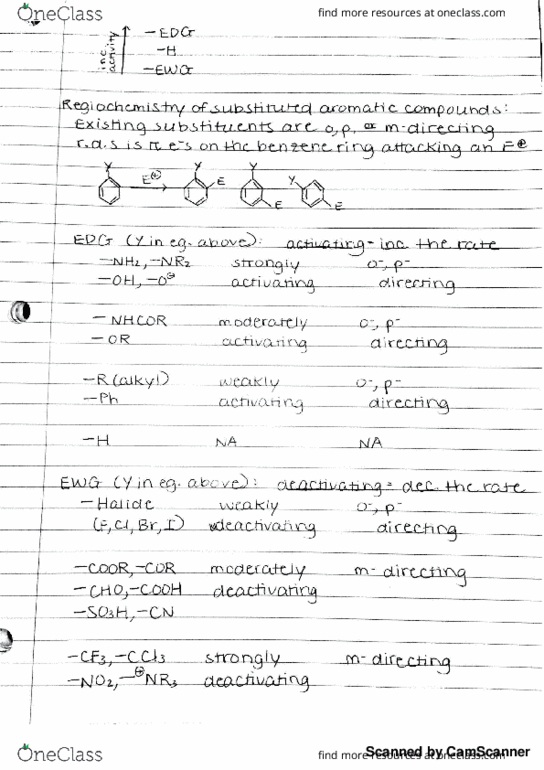 OneClass find more resources at oneclass.com
inc. activity
-EDG
-H
-EWG
Regiochemistry of substituted aromatic compounds:
Existing substituents are o,p, or m-directing
r.d.s is π e⁻s on the benzene ring attacking an E⊕
Y Y Y Y
E⊕ E E E
EDG (Y in eg. above): activating = inc. the rate
-NH2, -NR2 strongly o-, p-
-OH, -O⊖ activating directing
-NHCOR moderately o-, p-
-OR activating directing
-R (alkyl) weakly o-, p-
-Ph activating directing
-H NA NA
EWG (Y in eg. above): deactivating = dec. the rate
-Halide weakly o-, p-
(F, Cl, Br, I) deactivating directing
-COOR, -COR moderately m-directing
-CHO, -COOH deactivating
-SO3H, -CN
-CF3, -CCl3 strongly m-directing
-NO2, -⊕NR3 deactivating
OneClass find more resources at oneclass.com
Scanned by CamScanner